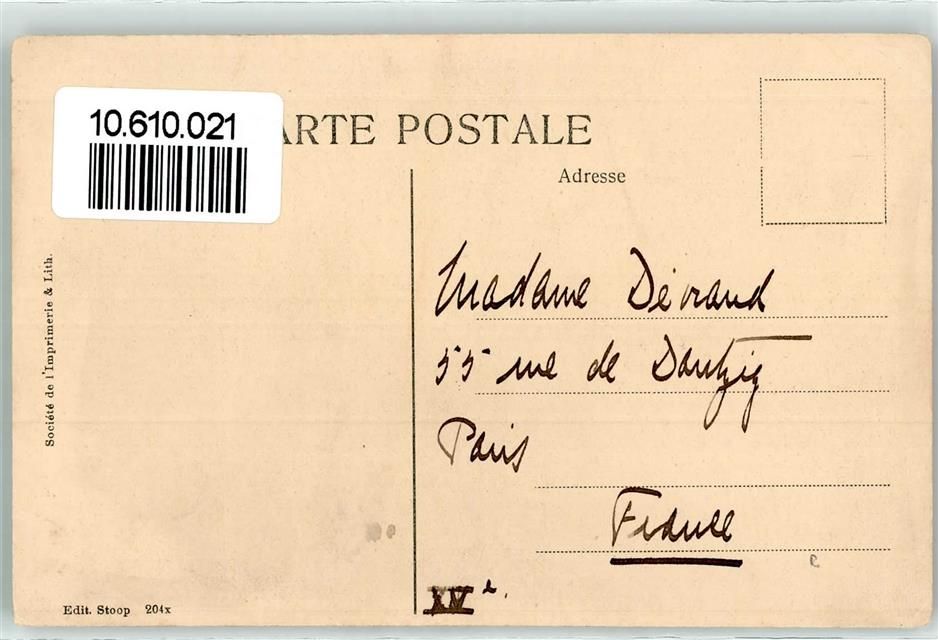 10.610.021
ARTE POSTALE
Adresse
Société de l'Imprimerie & Lith.
Madame Dévraud
55 rue de Dantzig
Paris
France
XVe.
Edit. Stoop 204x